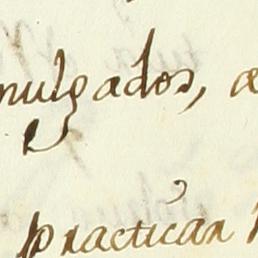 mulgados, a
practican